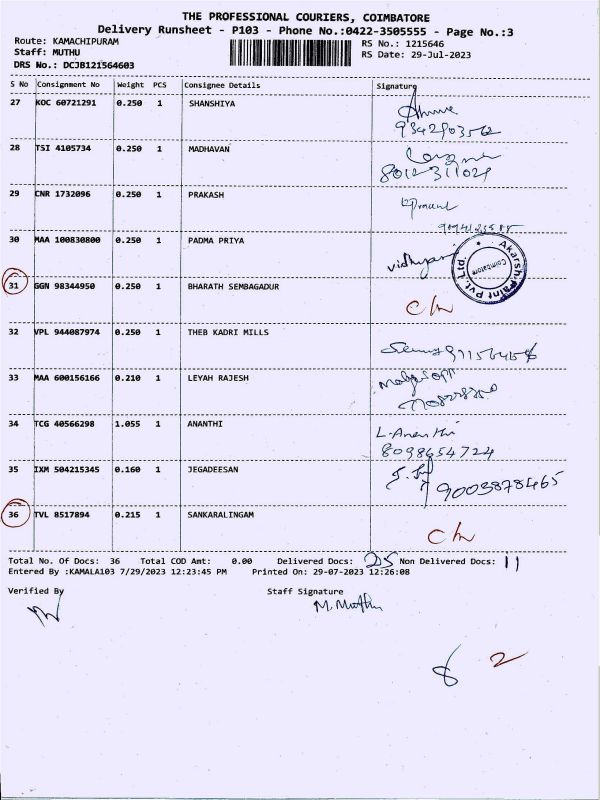 THE PROFESSIONAL COURIERS, COIMBATORE
Delivery Runsheet - P103 - Phone No.:0422-3505555 - Page No.:3
Route: KAMACHIPURAM
RS No.: 1215646
Staff: MUTHU
RS Date: 29-Jul-2023
DRS No.: DCJB121564603
S No Consignment No Weight PCS Consignee Details Signature
27 KOC 60721291 0.250 1 SHANSHIYA
28 TSI 4105734 0.250 1 MADHAVAN
29 CNR 1732096 0.250 1 PRAKASH
30 MAA 100830800 0.250 1 PADMA PRIYA
Akarsh Paint Pvt. Ltd. Coimbatore
31 GGN 98344950 0.250 1 BHARATH SEMBAGADUR
32 VPL 944087974 0.250 1 THEB KADRI MILLS
33 MAA 600156166 0.210 1 LEYAH RAJESH
34 TCG 40566298 1.055 1 ANANTHI L-Ananthi
8098654724
35 IXM 504215345 0.160 1 JEGADEESAN 9003878465
36 TVL 8517894 0.215 1 SANKARALINGAM
Total No. Of Docs: 36 Total COD Amt: 0.00 Delivered Docs: 25 Non Delivered Docs: 11
Entered By :KAMALA103 7/29/2023 12:23:45 PM Printed On: 29-07-2023 12:26:08
Verified By Staff Signature
M. Muthu
8 2